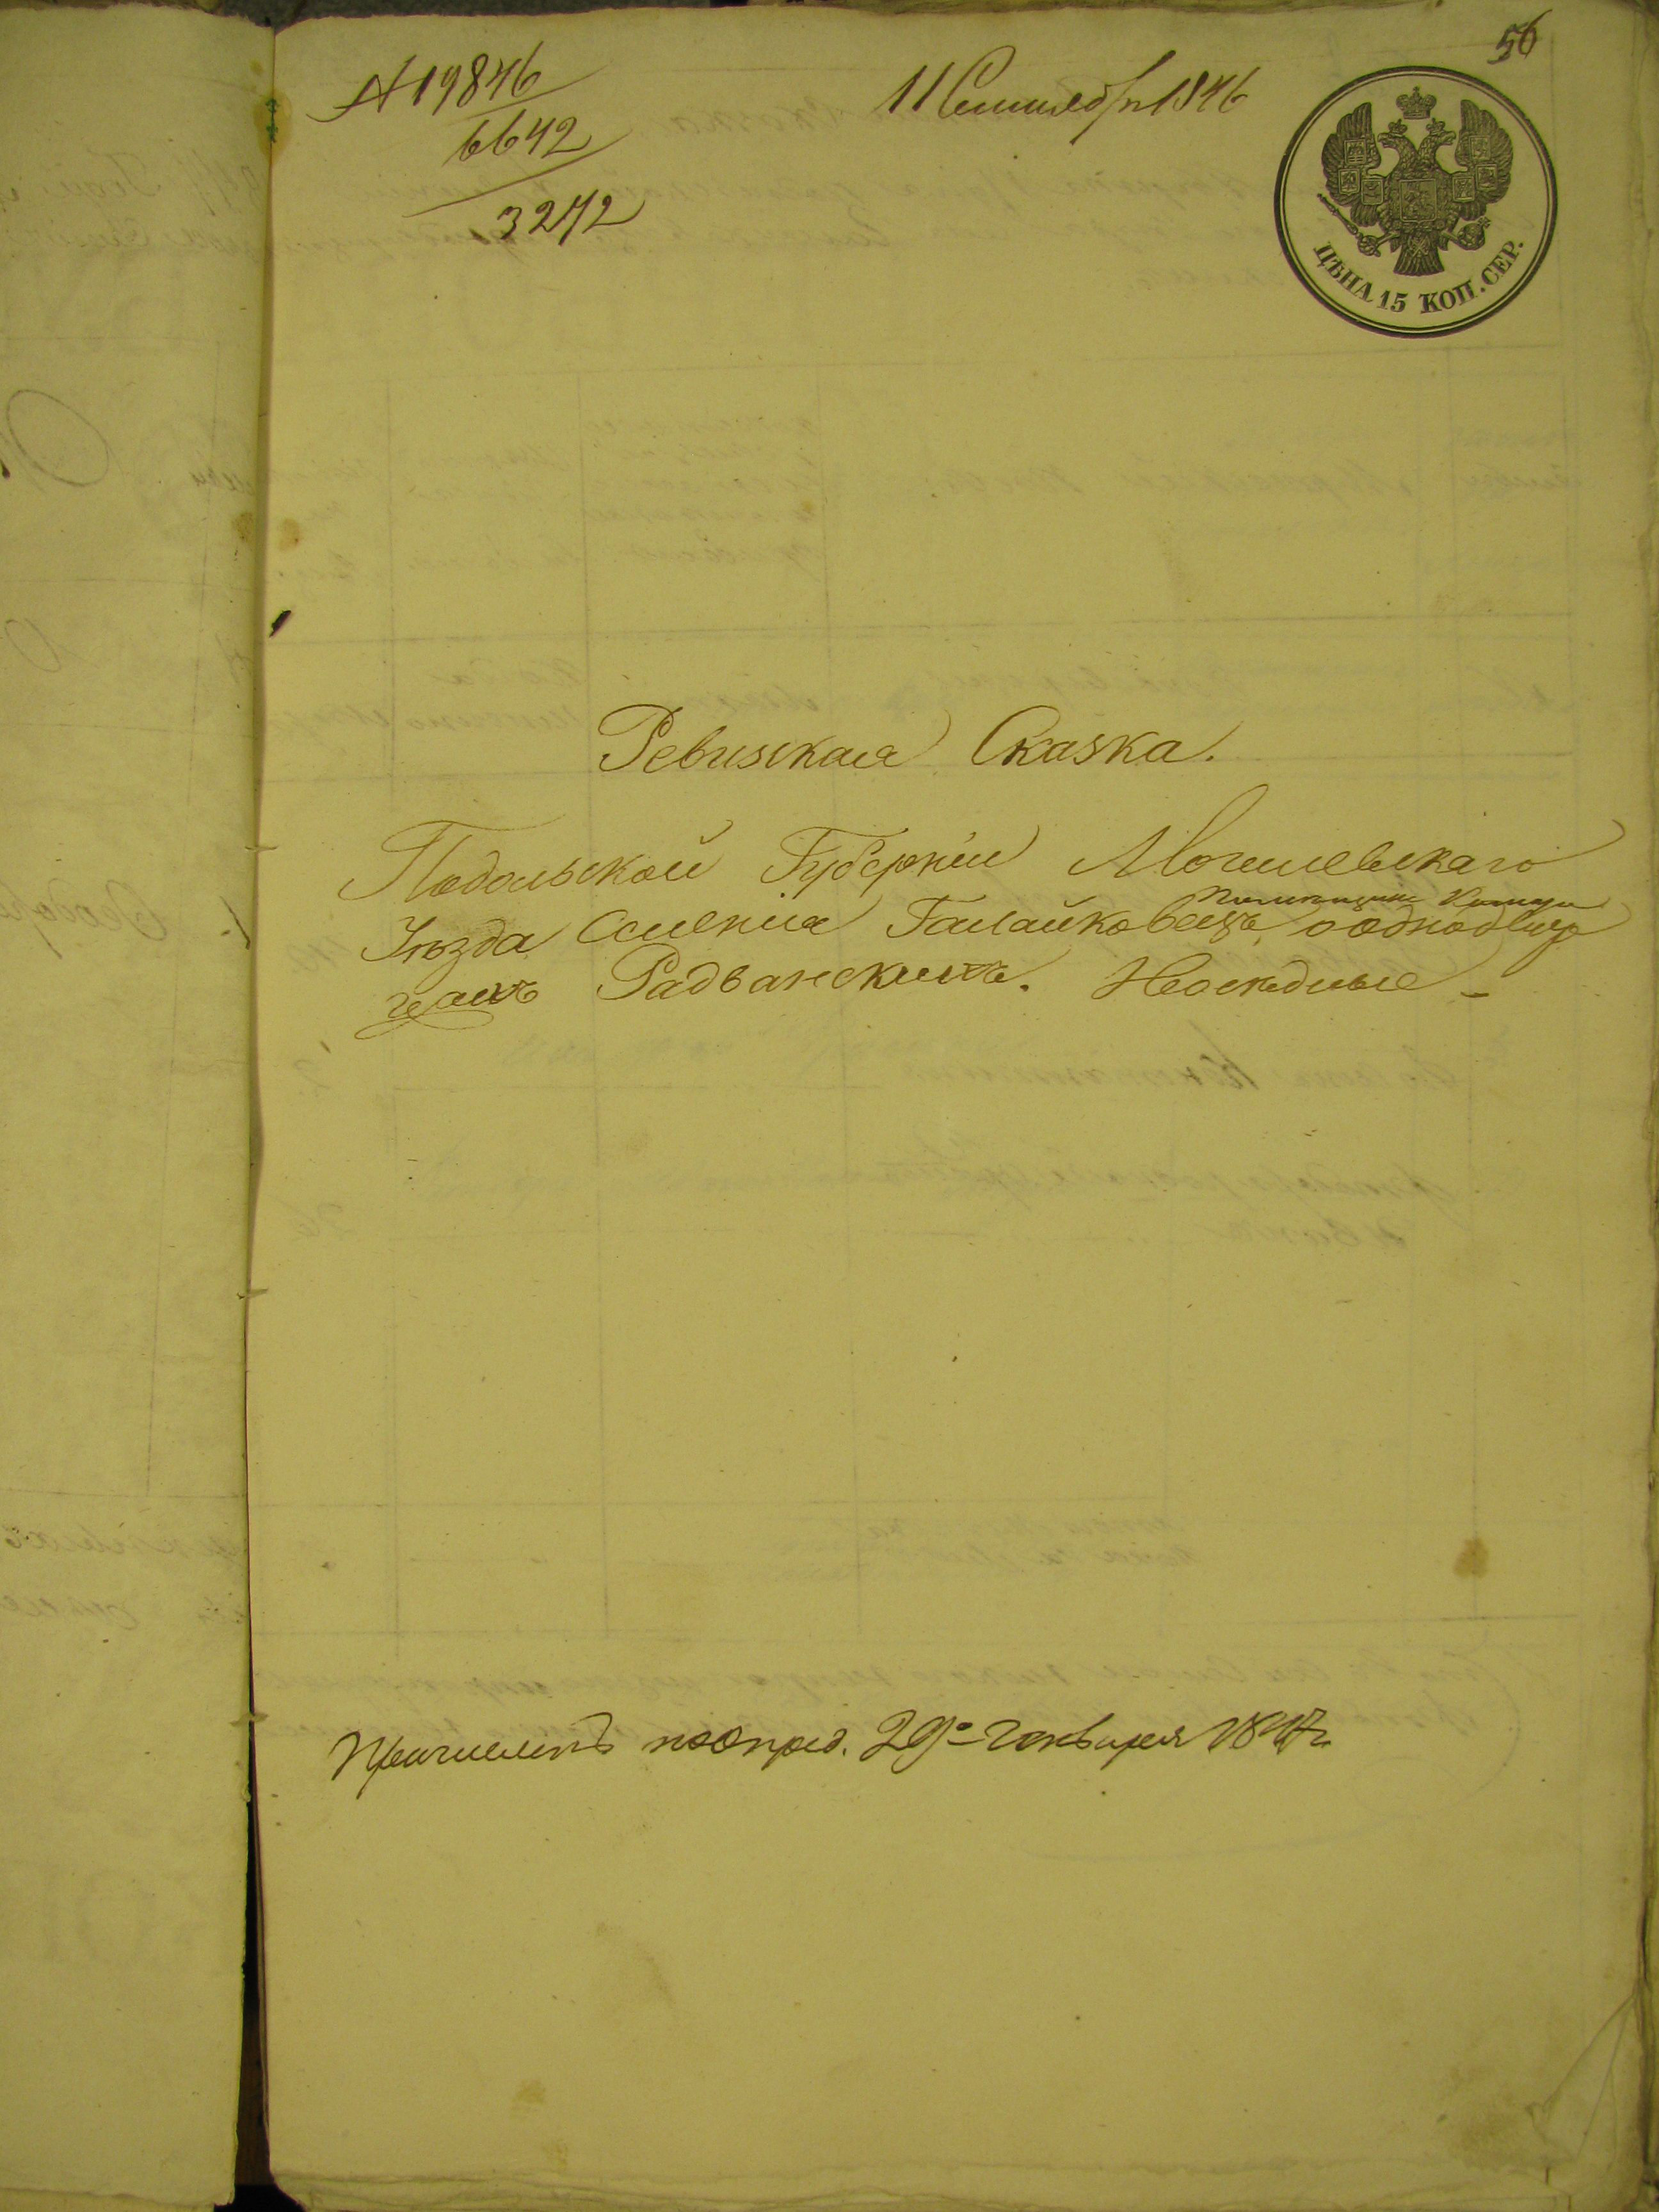 56
№ 19846
6642
3242
11 Сентября 1846
ЦѢНА 15 КОП. СЕР.
Ревизская Сказка.
Подольской Губернiи Могилевскаго
Уѣзда Селенiя Галайковецъ о однодвор
цахъ Радванскихъ. Неосѣдлые
Причислены по опред. 29го Генваря 1847г.